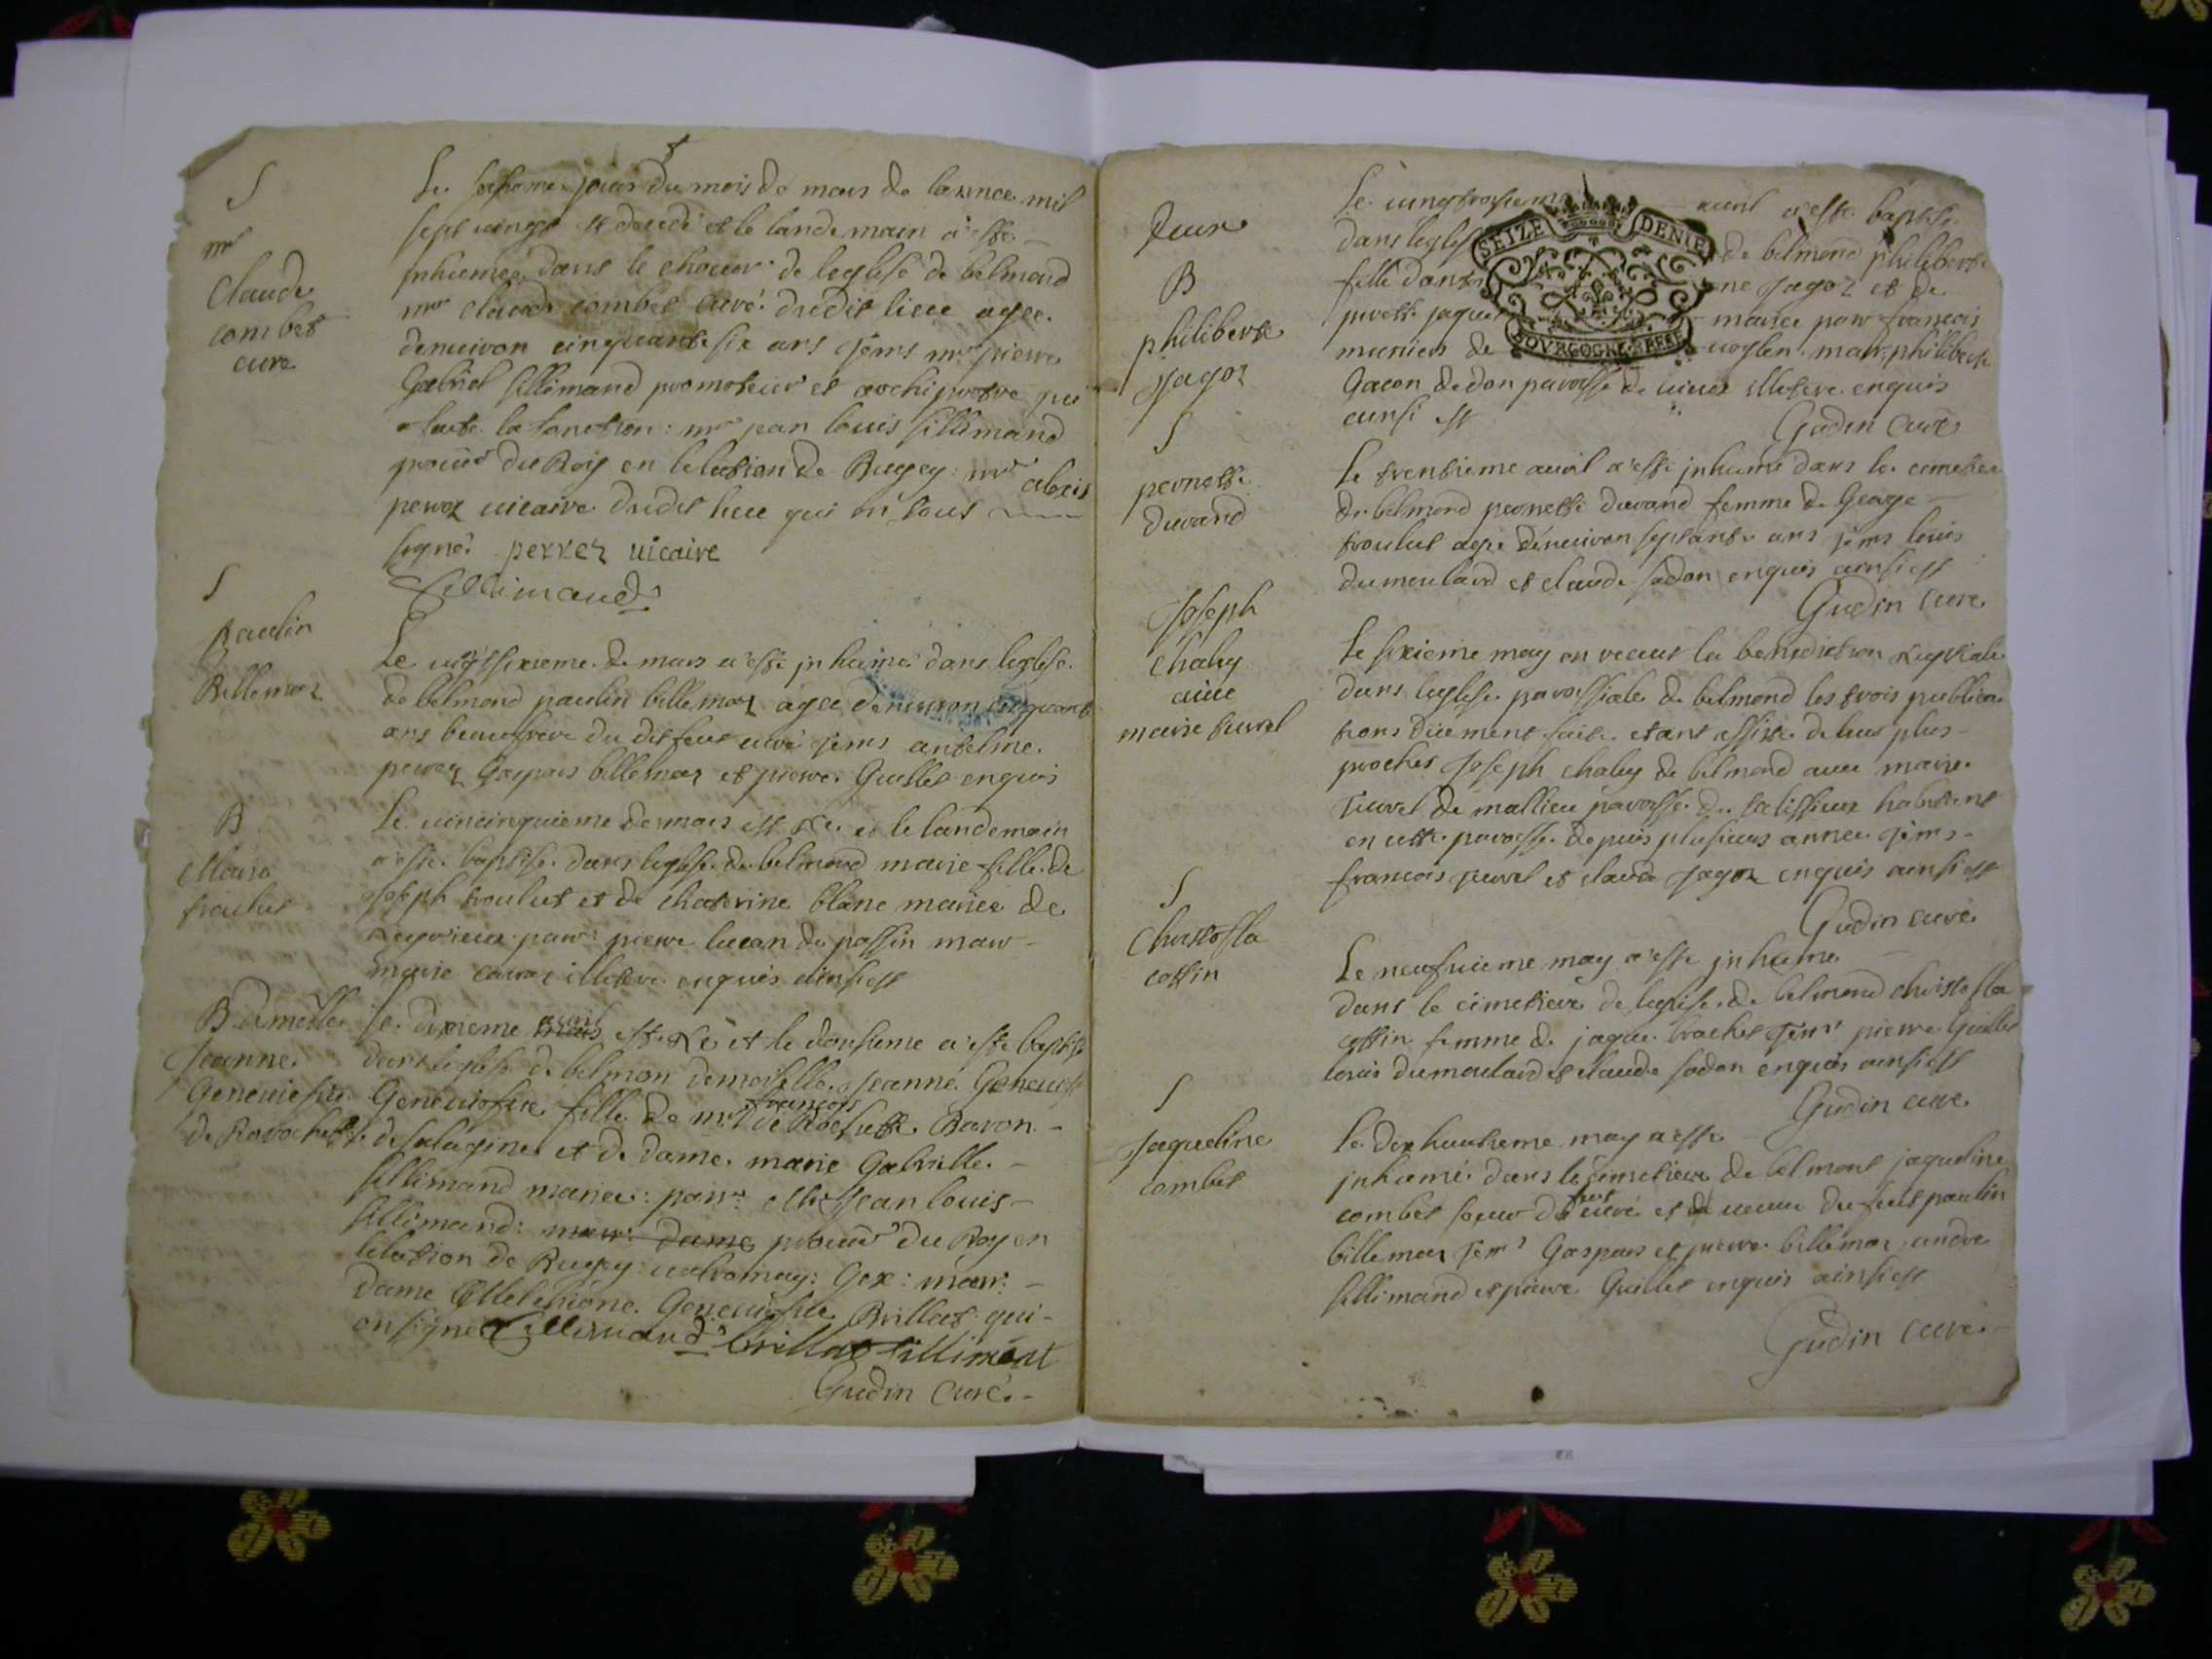 S
mr
Claude
combet
cure
Le seizieme jour du mois de mars de lannee mil
sept vingt est decedé et le landemain a esté
inhumee dans le choeur de leglise de belmond
mre claude combet curé dudit lieu agee
denuiron cinquante six ans tems mre pierre
Gabriel sillimand promoteur et archipretre qui
a faite la fonction: mre jean louis sillimand
procur du Roy en lelection de Bugey: mre alexis
perroz uicaire dudit lieu qui on tous
signé perrez uicaire
Sillimand
S
paulin
Billemaz
Le uigtsixieme de mars a esté inhumé dans leglise
de belmond paulin billemaz agee denuiron cinquante
ans beaufrere du dit feut curé tems antelme
perroz Gaspars billemaz et pierre Guillet enquis
B
Marie
troulut
Le uincinquieme de mars est Né et le landemain
a esté baptisé dans leglise de belmond marie fille de
Joseph troulut et de chaterine blanc mariee de
parr: pierre lucan de passin marr
marie illitere enquis ainsi est
B. damelle
Jeanne
Geneuiefue
de Rarochette
Le dixieme mars auril est Né et le dousieme a esté baptisé
dans leglise de belmon demoiselle Jeanne Geneuief
Geneuiefue fille de mre francois de Rochette Baron
de salagine et de dame marie Gabrille
sillimand mariee: parr: Mre Jean louis
sillimand: marr: dame procur du Roy en
lelection de Bugey ualromay: Gex: marr:
dame Geneuiefue Brillat qui
on signé Sillimand brillat sillimant
Gudin Curé
Deux
B
philiberte
Jagoz
Le uingtroisieme auril a esté baptisé
dans leglise de belmond philiberte
fille dant ne Jagoz et de
jaque mariee parr francois
muniers de marr philiberte
Gacon de don paroisse de uieux illitere enquis
ainsi est
Gudin Curé
S
pernette
durand
Le trentieme auril a esté inhumé dans le cimetiere
de belmond pernette durand femme de George
troulut agee dénuiron septante ans tems louis
dumoulard et claude sadon enquis ainsi est
Gudin Curé
Joseph
chaley
auec
marie juvel
Le sixieme may on receut la benediction Nuptiale
dans leglise paroissiale de belmond les trois publica
tions düement faite etant assisté de leur plus
proches Joseph chaley de belmond auec marie
Juvel de mallieu paroisse de talissieux habitant
en cette paroisse depuis plusieurs annee tems
francois juvel et claude Jagoz enquis ainsi est
Gudin curé
S
Christofla
cottin
Le neufuieme may a esté inhumé
dans le cimetiere de leglise de belmond christofla
cottin femme de jaque brachet tems pierre Guillet
louis dumoulard et claude sadon enquis ainsi est
Gudin curé
S
Jaqueline
combet
Le dixhuitieme may a esté
inhumé dans le cimetiere de belmont jaqueline
combet soeur du feut curé et ueuue du feut paulin
billemaz tems Gaspars et pierre billemaz andre
sillimand et pierre Guillet enquis ainsi est
Gudin curé
SEIZE DENIE
BOVRGOGNE BRESSE